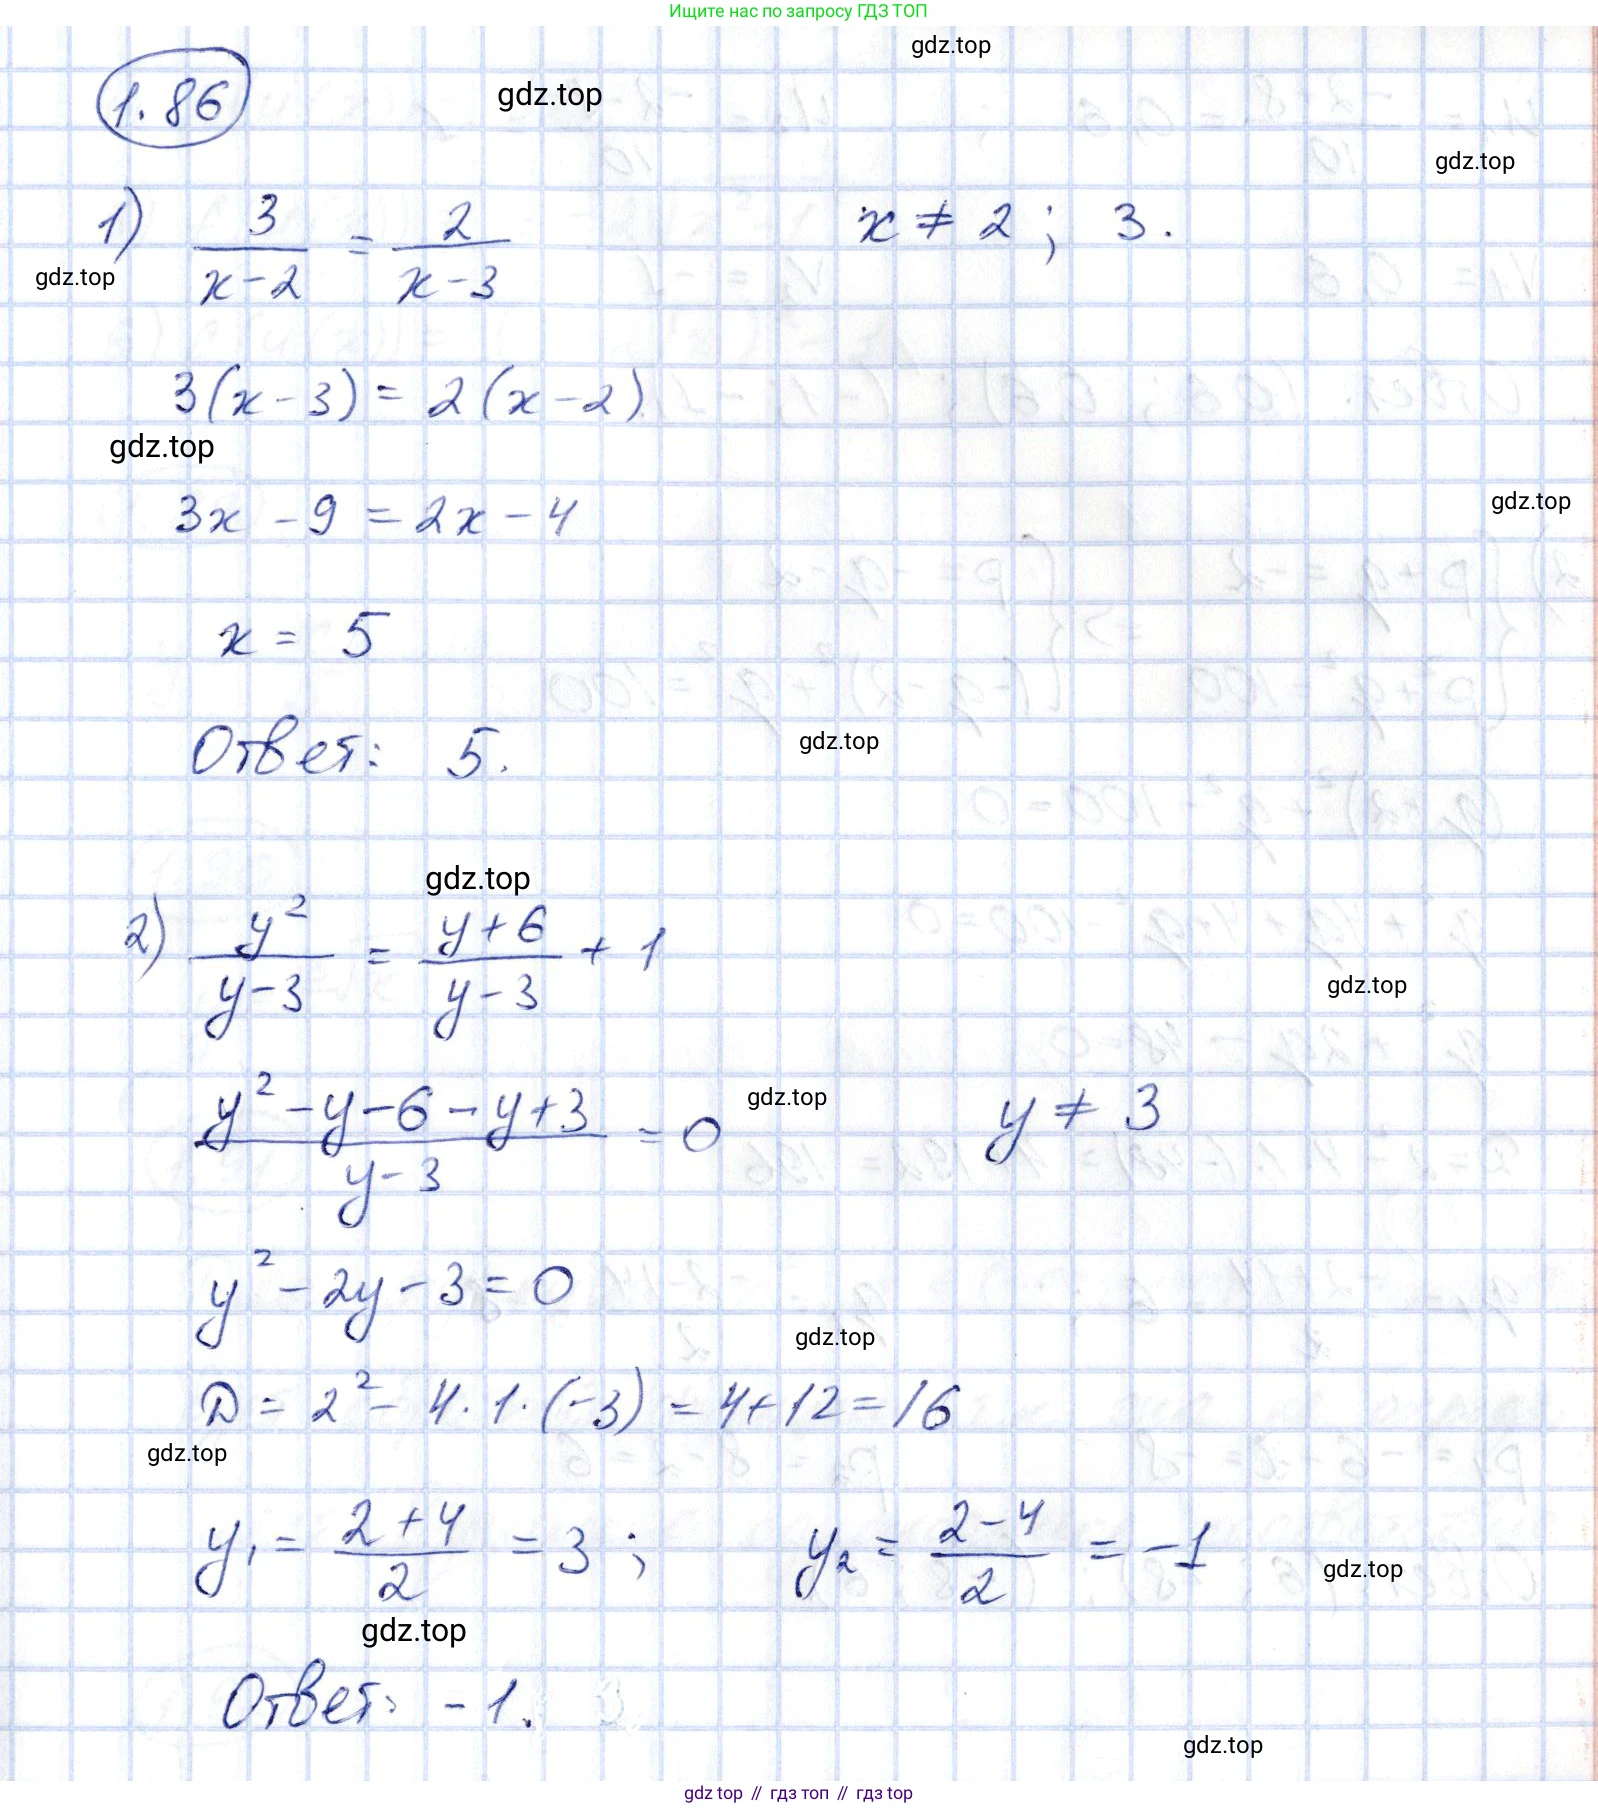 Ищите нас по запросу ГДЗ ТОП
gdz.top
1.86
gdz.top
gdz.top
1) 3/(x-2) = 2/(x-3)     x ≠ 2 ; 3.
gdz.top
3(x-3) = 2(x-2)
gdz.top
3x - 9 = 2x - 4
gdz.top
x = 5
Ответ: 5.
gdz.top
gdz.top
2) y²/(y-3) = (y+6)/(y-3) + 1
gdz.top
(y²-y-6-y+3)/(y-3) = 0     y ≠ 3
gdz.top
y² - 2y - 3 = 0
gdz.top
D = 2² - 4·1·(-3) = 4+12 = 16
gdz.top
y₁ = (2+4)/2 = 3 ;     y₂ = (2-4)/2 = -1
gdz.top
gdz.top
Ответ: -1.
gdz.top
gdz top // гдз топ // гдз top